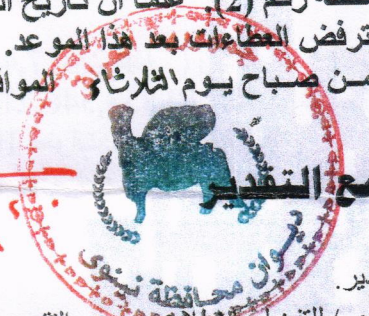 رقم (2). علماً ان تاريخ
ترفض العطاءات بعد هذا الموعد.
من صباح يوم الثلاثاء الموافق
مع التقدير
ديوان محافظة نينوى